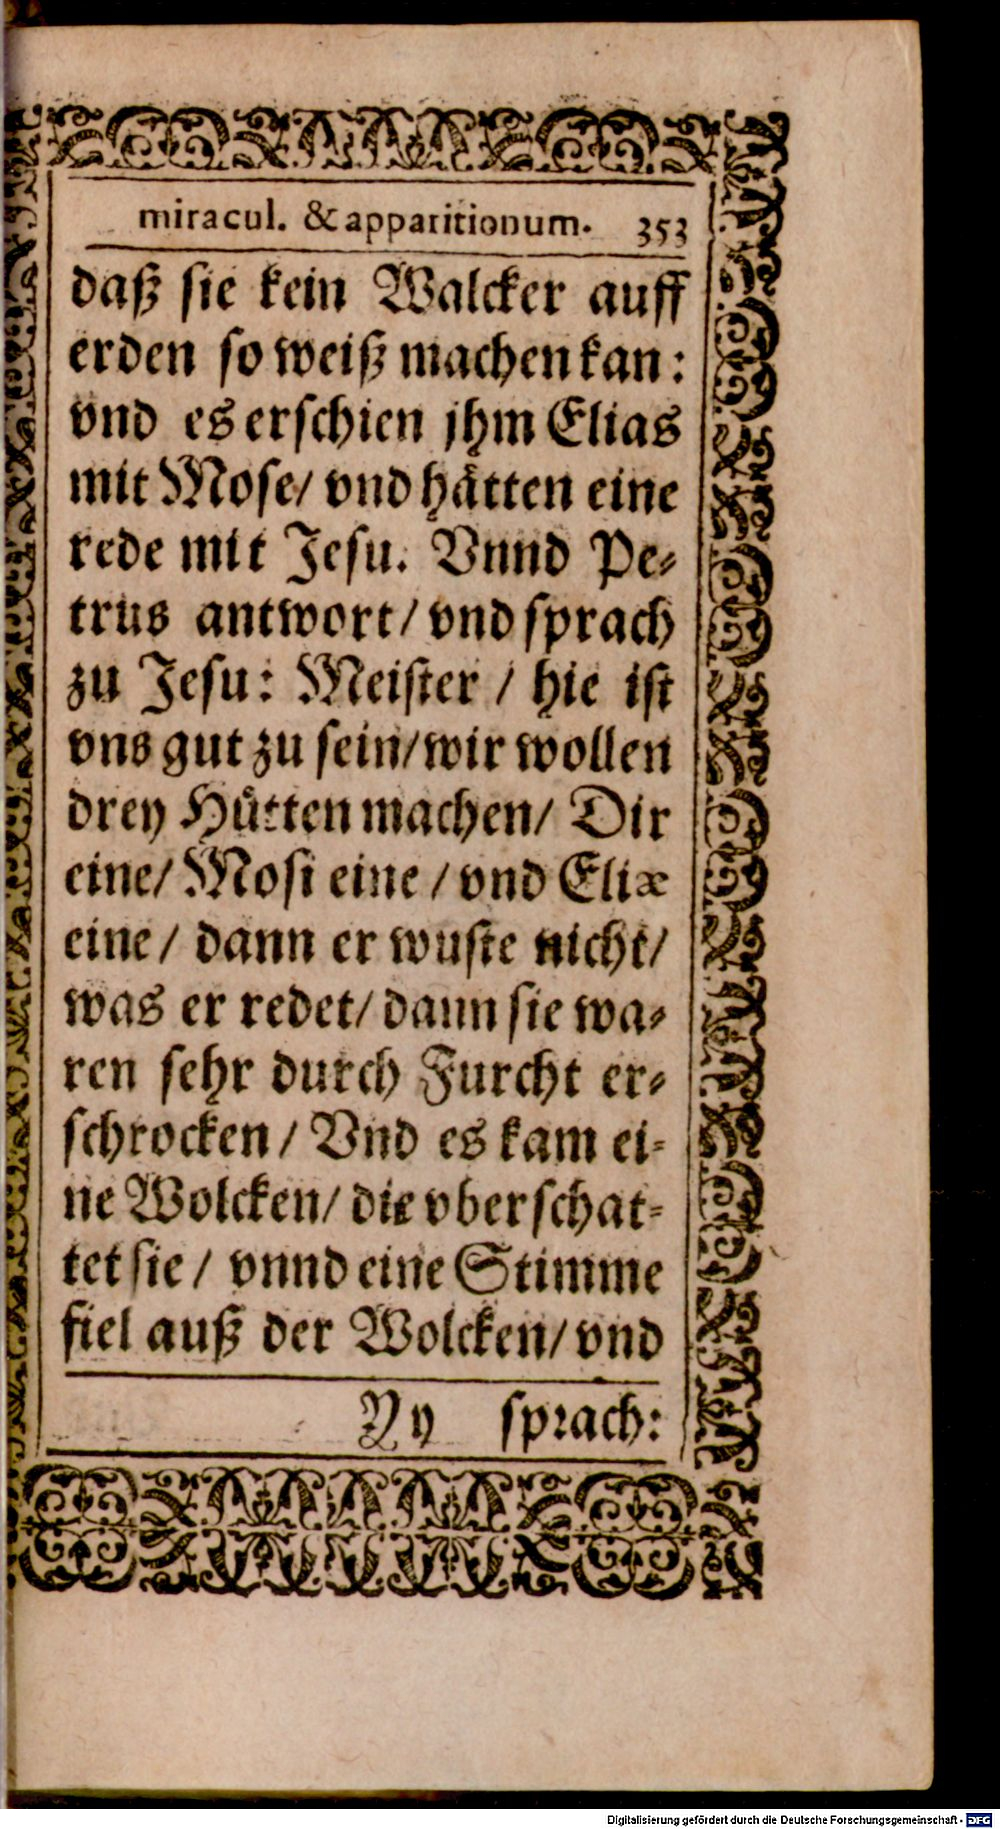 miracul. & apparitionum. 353
daß sie kein Walcker auff
erden so weiß machen kan:
vnd es erschien jhm Elias
mit Mose/ vnd hätten eine
rede mit Jesu. Vnnd Pe-
trus antwort/ vnd sprach
zu Jesu: Meister / hie ist
vns gut zu sein/ wir wollen
drey Hütten machen/ Dir
eine/ Mosi eine / vnd Eliæ
eine / dann er wuste nicht/
was er redet/ dann sie wa-
ren sehr durch Furcht er-
schrocken / Vnd es kam ei-
ne Wolcken/ die vberschat-
tet sie / vnnd eine Stimme
fiel auß der Wolcken/ vnd
Yy sprach:
Digitalisierung gefördert durch die Deutsche Forschungsgemeinschaft - DFG